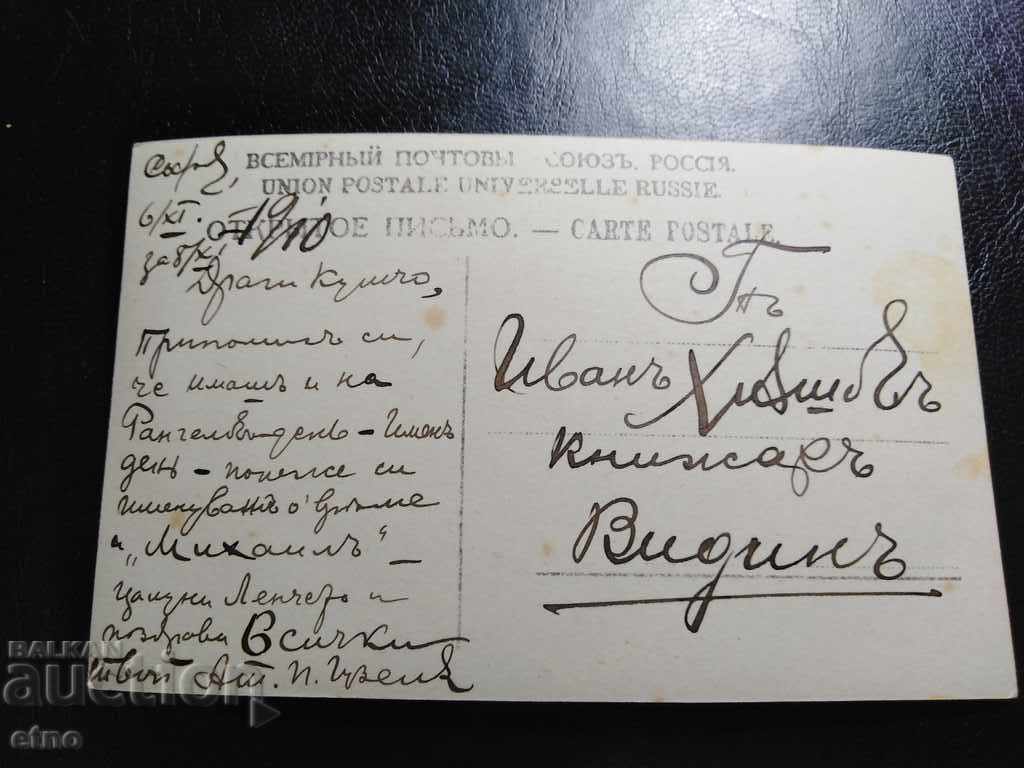 София, ВСЕМІРНЫЙ ПОЧТОВЫ СОЮЗЪ. РОССІЯ.
UNION POSTALE UNIVERSELLE RUSSIE.
6/XI. 1910
ОТКРЫТОЕ ПИСЬМО. — CARTE POSTALE.
за 8/XI
Драги Кумчо,
Припомнихъ си,
че имашъ и на
Рангелов-день – Именъ
день – понеже си
именуванъ о време
и „Михаилъ" –
цалуни Ленчето и
поздрави Всички
твой Ат. П.
Г-нъ
Иванъ
книжаръ
Видинъ
BALKAN
auction
etno